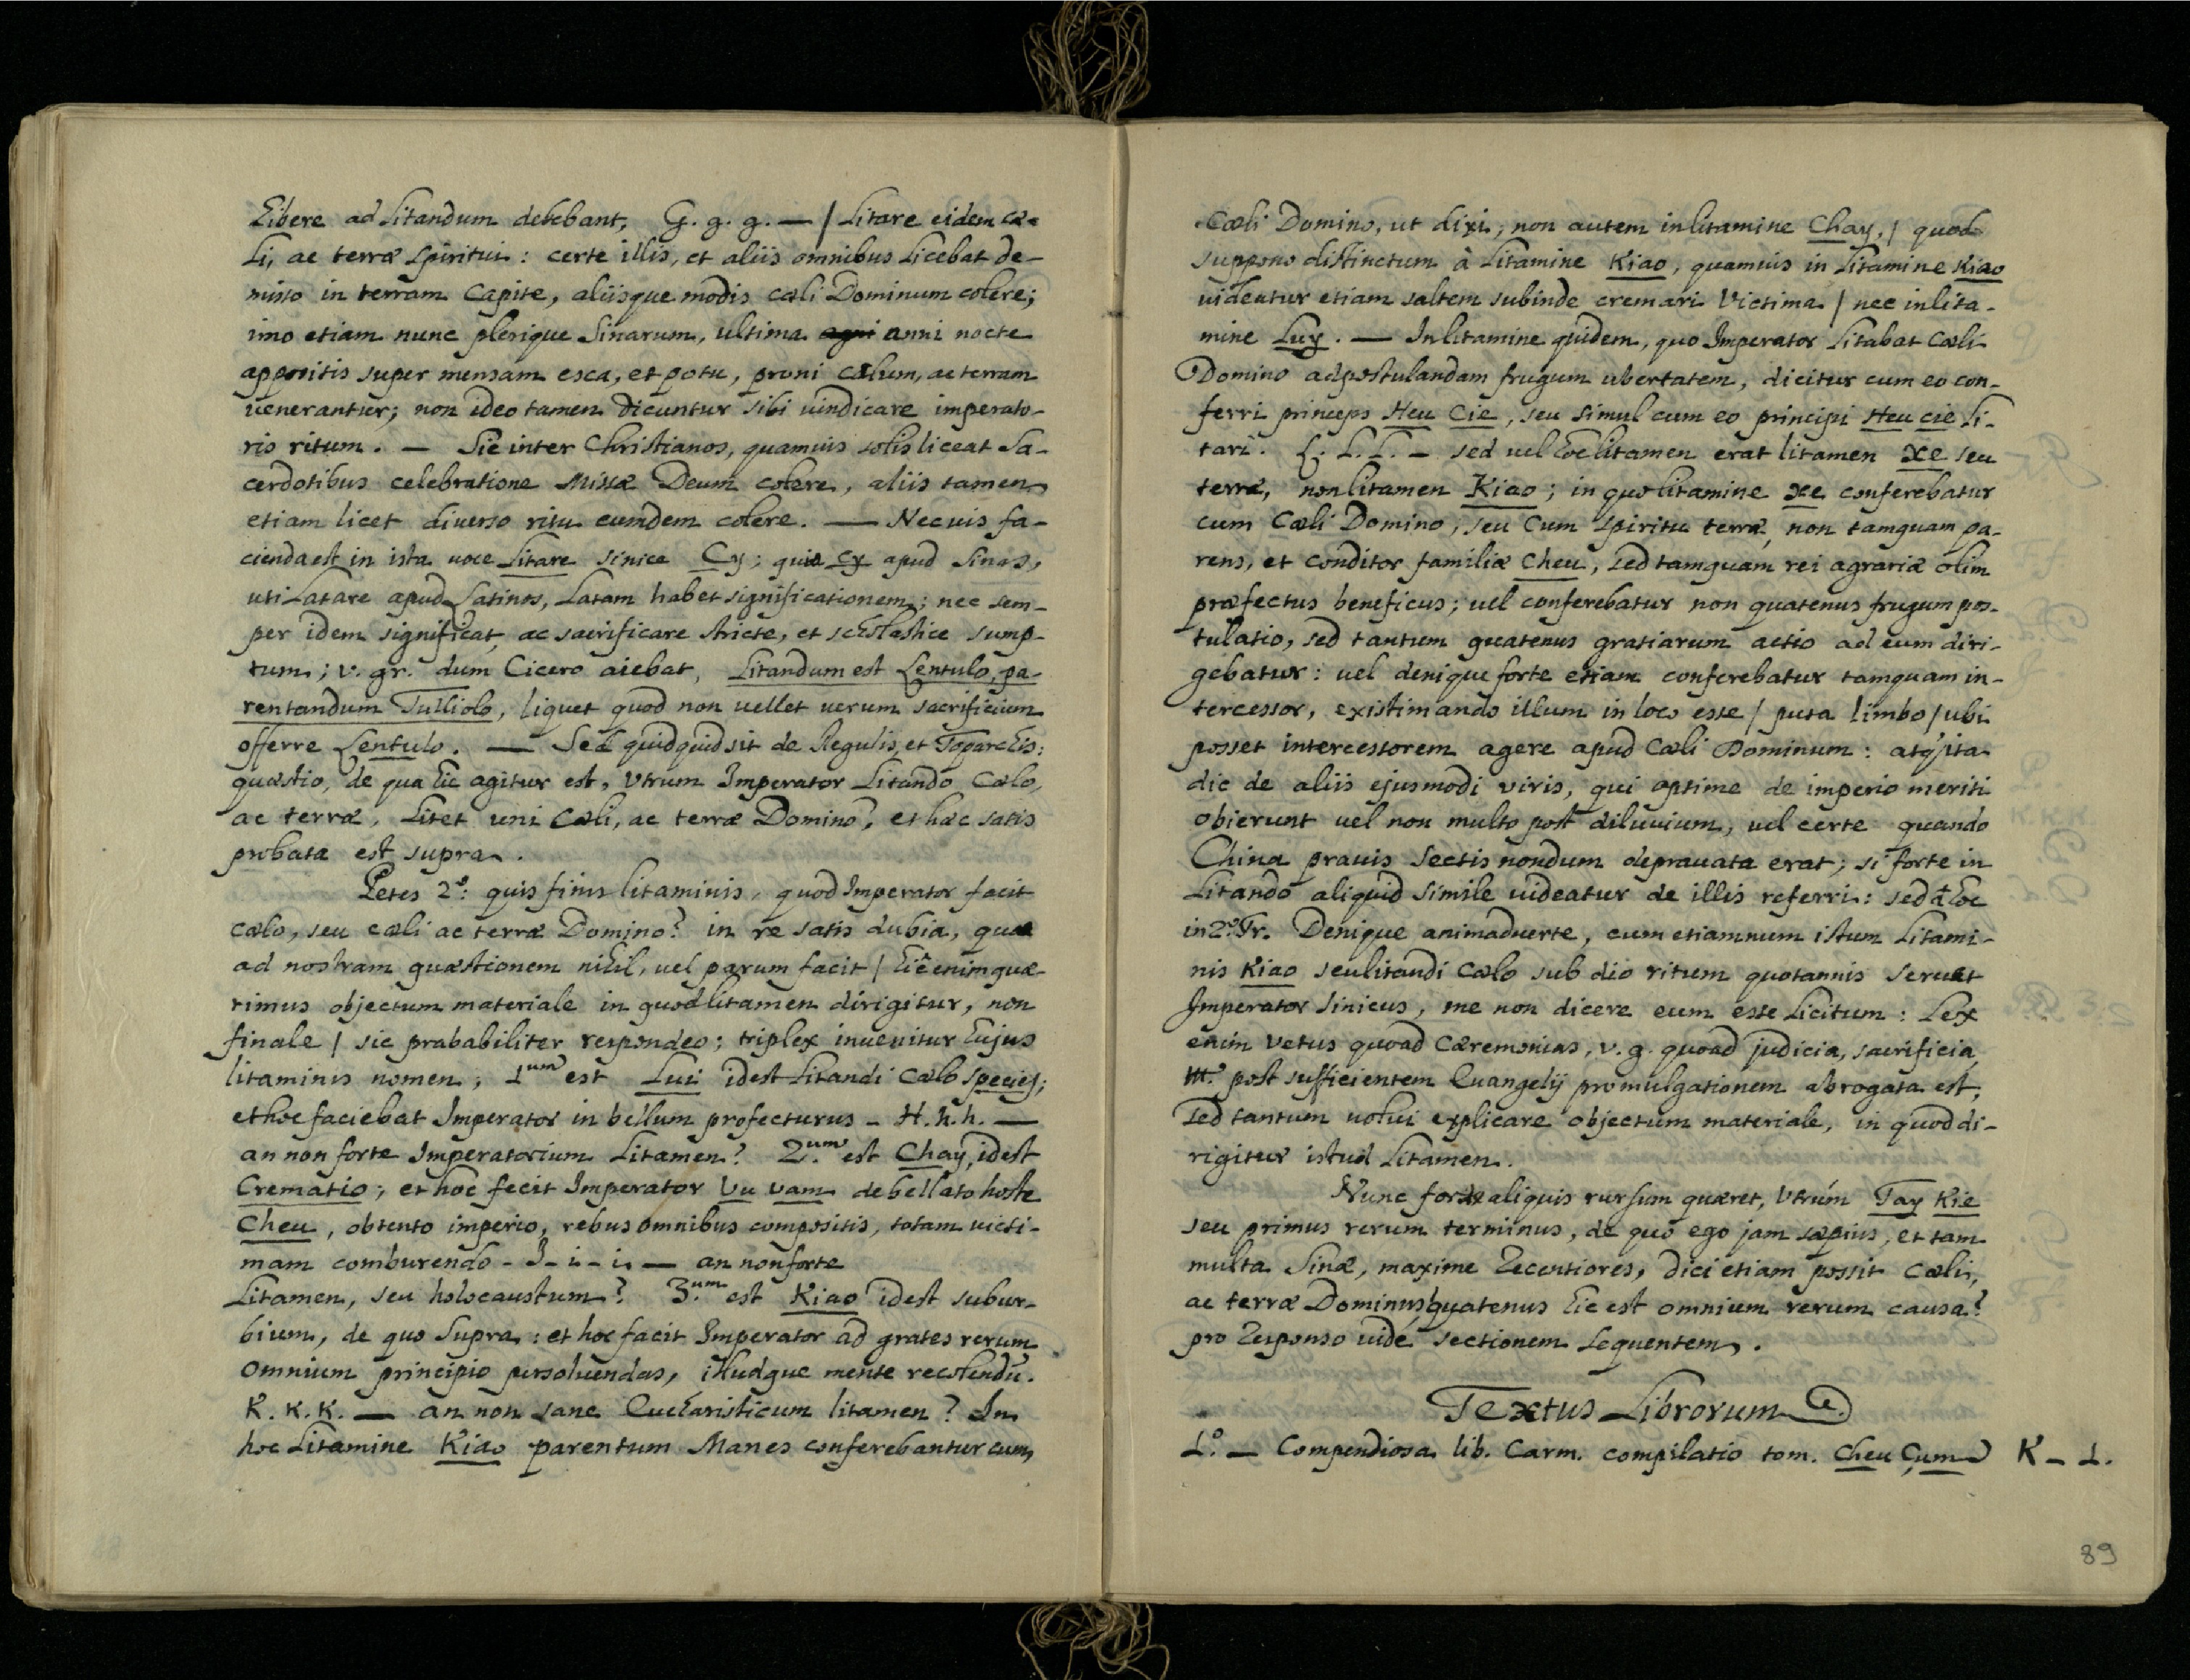 hibere ad litandum debebant, G. g. g. — / litare eidem cæ-
li, ac terræ spiritui : certe illis, et aliis omnibus licebat de-
misso in terram capite, aliisque modis cæli Dominum colere;
imo etiam nunc plerique Sinarum, ultima anni nocte
appositis super mensam esca, et potu, proni cælum, ac terram
venerantur; non ideo tamen dicuntur sibi vindicare imperato-
ris ritum. — Sic inter Christianos, quamvis solis liceat Sa-
cerdotibus celebratione Missæ Deum colere, aliis tamen
etiam licet diverso ritu eumdem colere. — Nec vis fa-
cienda est in ista voce litare sinice Cy; quia cy apud Sinas,
uti Latare apud Latinos, latam habet significationem; nec sem-
per idem significat, ac sacrificare stricte, et scholastice sump-
tum; v. gr. dum Cicero aiebat, Litandum est Lentulo, pa-
rentandum Tulliolo, liquet quod non vellet verum sacrificium
offerre Lentulo. — Sed quidquid sit de Regulis, et Toparchis:
quæstio, de qua hic agitur est, Utrum Imperator Litando Cælo,
ac terræ, Litet uni Cæli, ac terræ Domino? et hæc satis
probata est supra.
Petes 2º: quis finis litaminis, quod Imperator facit
cælo, seu cæli ac terræ Domino? in re satis dubia, quæ
ad nostram quæstionem nihil, vel parum facit / hic enim quæ-
rimus objectum materiale in quod litamen dirigitur, non
finale / sic prababiliter respondeo; triplex invenitur hujus
litaminis nomen; 1um est Lui idest Litandi Cælo species;
et hoc faciebat Imperator in bellum profecturus - H. h. h. —
an non forte Imperatorium Litamen? 2.um est Chay, idest
Crematio; et hoc fecit Imperator Vu vam debellato hoste
Cheu, obtento imperio, rebus omnibus compositis, totam victi-
mam comburendo - I - i - i. — an non forte
Litamen, seu holocaustum? 3.um est Kiao idest subur-
bium, de quo supra : et hoc facit Imperator ad grates rerum
omnium principio persolvendas, illudque mente recolendū.
K. K. K. — an non sane Eucharisticum litamen? In
hoc Litamine Kiao parentum Manes conferebantur cum
Cæli Domino, ut dixi, non autem in litamine Chay, / quod
suppono distinctum à Litamine Kiao, quamvis in Litamine Kiao
videatur etiam saltem subinde cremari Victima / nec in lita-
mine Luy. — In litamine quidem, quo Imperator Litabat Cæli
Domino ad postulandam frugum ubertatem, dicitur cum eo con-
ferri princeps Heu Cie, seu simul cum eo principi Heu cie li-
tari. L. L. L. — sed vel hoc litamen erat litamen xe seu
terræ, non litamen Kiao; in quo litamine xe conferebatur
cum Cæli Domino, seu cum spiritu terræ, non tamquam pa-
rens, et conditor familiæ Cheu, sed tamquam rei agrariæ olim
præfectus beneficus; vel conferebatur non quatenus frugum pos-
tulatio, sed tantum quatenus gratiarum actio ad eum diri-
gebatur: vel denique forte etiam conferebatur tamquam in-
tercessor, existimando illum in loco esse / puta limbo / ubi
posset intercessorem agere apud Cæli Dominum: atq; ita
dic de aliis ejusmodi viris, qui optime de imperio meriti
obierunt vel non multo post diluvium, vel certe quando
China pravis sectis nondum depravata erat; si forte in
Litando aliquid simile videatur de illis referri: sed de hoc
in 2º Tr. Denique animadverte, cum etiamnum istum Litami-
nis Kiao seu litandi Cælo sub dio ritum quotannis servet
Imperator Sinicus, me non dicere eum esse licitum: Lex
enim vetus quoad Cæremonias, v. g. quoad judicia, sacrificia
post sufficientem Evangelij promulgationem abrogata est,
sed tantum volui explicare objectum materiale, in quod di-
rigitur istud Litamen.
Nunc forte aliquis rursum quæret, Utrùm Tay Kie
seu primus rerum terminus, de quo ego jam sæpius, et tam
multa Sinæ, maxime recentiores, dici etiam possit Cæli,
ac terræ Dominus, quatenus hic est omnium rerum causa?
pro Responso vide sectionem sequentem.
Textus Librorum
1º — Compendiosa lib. Carm. compilatio tom. Cheu Çum K - 1.
89